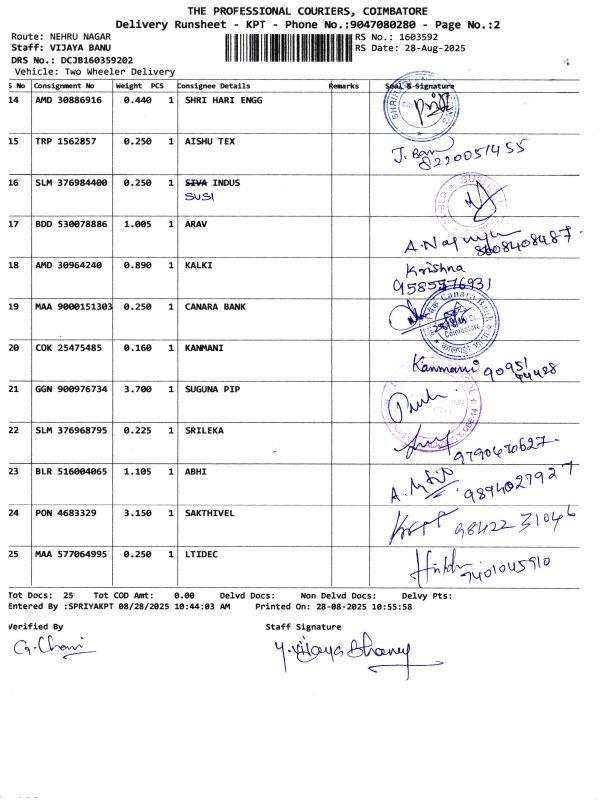 THE PROFESSIONAL COURIERS, COIMBATORE
Delivery Runsheet - KPT - Phone No.:9047080280 - Page No.:2
Route: NEHRU NAGAR RS No.: 1603592
Staff: VIJAYA BANU RS Date: 28-Aug-2025
DRS No.: DCJB160359202
Vehicle: Two Wheeler Delivery
S No Consignment No Weight PCS Consignee Details Remarks Seal & Signature
14 AMD 30886916 0.440 1 SHRI HARI ENGG
15 TRP 1562857 0.250 1 AISHU TEX
J. Banu
8220051455
16 SLM 376984400 0.250 1 SIVA INDUS
SUSI
17 BDD 530078886 1.005 1 ARAV
8608408487
18 AMD 30964240 0.890 1 KALKI Krishna
9585576931
19 MAA 9000151303 0.250 1 CANARA BANK
Canara Bank
Coimbatore
20 COK 25475485 0.160 1 KANMANI
Kanmani 90951
44428
21 GGN 900976734 3.700 1 SUGUNA PIP
22 SLM 376968795 0.225 1 SRILEKA
9790670627
23 BLR 516004065 1.105 1 ABHI
9894027927
24 PON 4683329 3.150 1 SAKTHIVEL
98422 31046
25 MAA 577064995 0.250 1 LTIDEC
7401045910
Tot Docs: 25 Tot COD Amt: 0.00 Delvd Docs: Non Delvd Docs: Delvy Pts:
Entered By :SPRIYAKPT 08/28/2025 10:44:03 AM Printed On: 28-08-2025 10:55:58
Verified By Staff Signature
G. Chari Y. Vijaya Bhanu